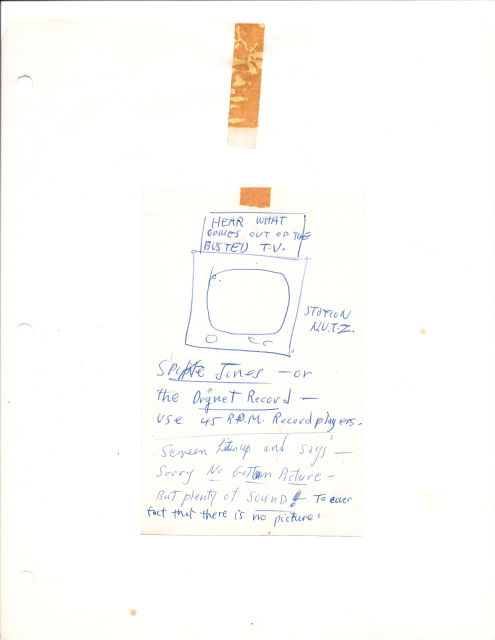 HEAR WHAT
COMES OUT OF THE
BUSTED T.V.
STATION
N.U.T.Z.
Spike Jones – or
the Dragnet Record –
use 45 R.P.M. Record players.
Screen lites up and says –
Sorry No Gotten Picture –
But plenty of Sound! To cover
fact that there is no picture.